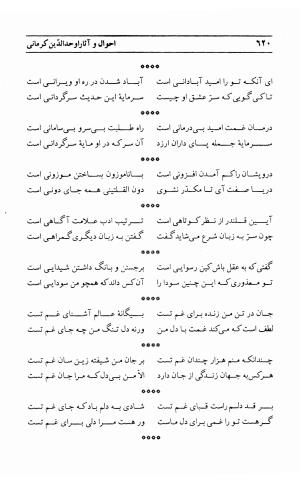 ۶۲۰ احوال و آثار اوحدالدّین کرمانی
****
ای آنکه تو را امید آبادانی است آباد شدن در ره او ویرانی است
تا کی گویی که سرّ عشق او چیست سرمایهٔ این حدیث سرگردانی است
****
درمان غمت امید بی‌درمانی است راه طلبت بی‌سر و بی‌سامانی است
سرمایهٔ جمله پای داران ارزد آن سر که در او مایهٔ سرگردانی است
****
درویشان را کم آمدن افزونی است با ناموزون بساختن موزونی است
دریا صفت آی تا مکدّر نشوی دون القلتینی همه جای دونی است
****
آیین قلندر از نظر کوتاهی است ترتیب ادب علامت آگاهی است
چون سرّ به زبان شرع می‌شاید گفت گفتن به زبان دیگری گمراهی است
****
گفتی که به عقل باش کین رسوایی است برجستن و بانگ داشتن شیدایی است
تو معذوری که این چنین سودا را آن کس داند که همچو من سودایی است
****
جان در تن من زنده برای غم تست بیگانهٔ عالم آشنای غم تست
لطف است که می‌کند غمت با دل من ورنه دل تنگ من چه جای غم تست
****
چندانکه منم هزار چندان غم تست بر جان من شیفته زین سان غم تست
هرکس به جهان زندگی از جان دارد الّا من بی‌دل که مرا جان غم تست
****
بر قد دلم راست قبای غم تست شادی به دلم باد که جای غم تست
گر هست تو را غمی برای دل ماست ور هست مرا دلی برای غم تست
****